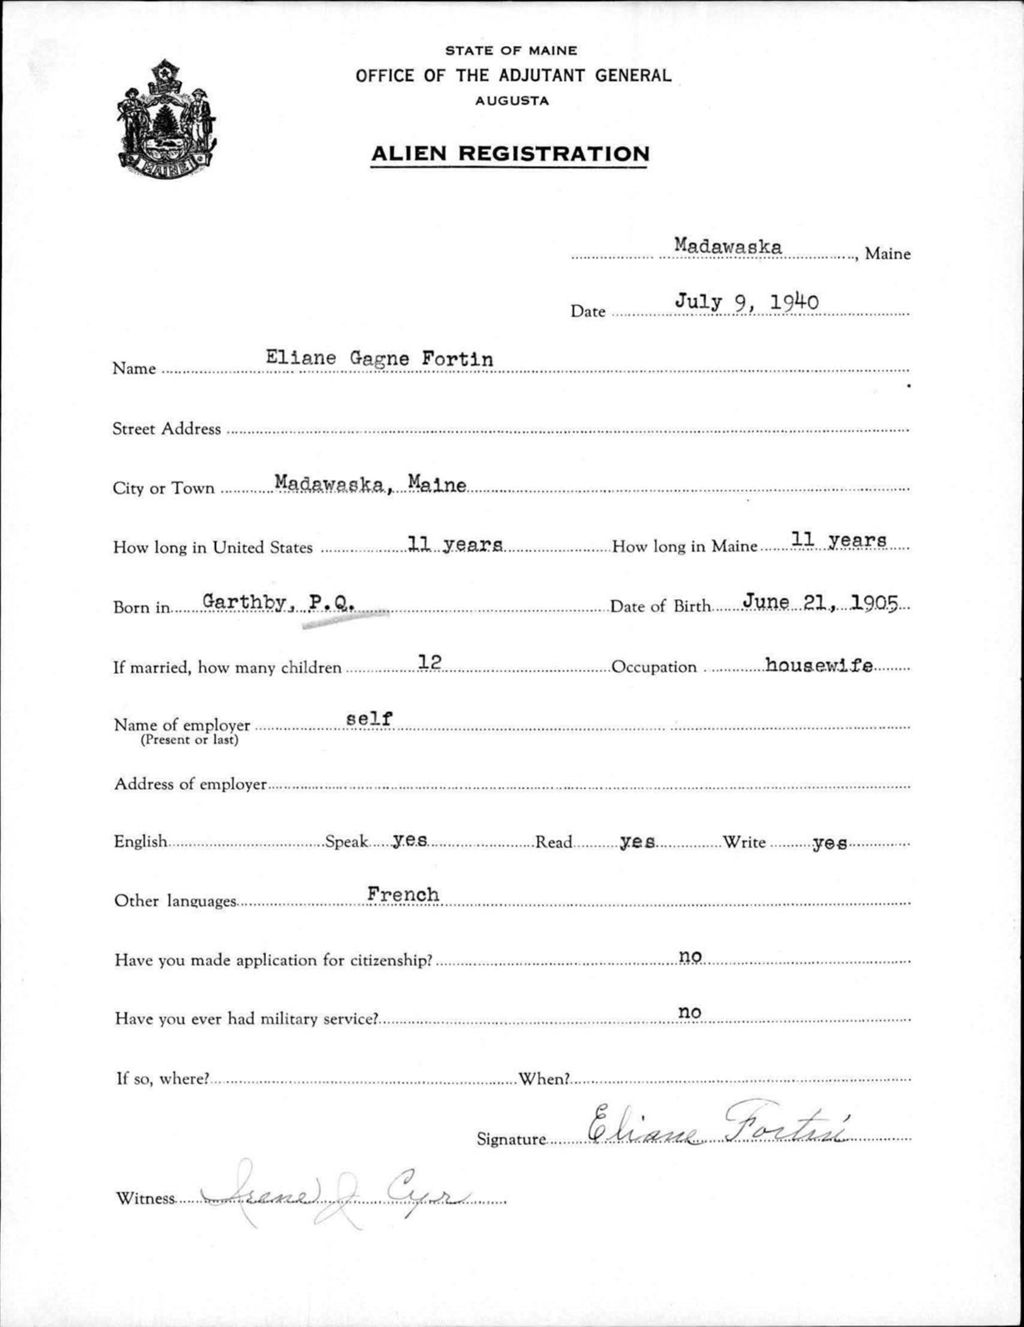 STATE OF MAINE
OFFICE OF THE ADJUTANT GENERAL
AUGUSTA
ALIEN REGISTRATION
MAINE
Madawaska, Maine
Date July 9, 1940
Name Eliane Gagne Fortin
Street Address
City or Town Madawaska, Maine
How long in United States 11 years How long in Maine 11 years
Born in Garthby, P.Q. Date of Birth June 21, 1905
If married, how many children 12 Occupation housewife
Name of employer self
(Present or last)
Address of employer
English Speak yes Read yes Write yes
Other languages French
Have you made application for citizenship? no
Have you ever had military service? no
If so, where? When?
Signature Eliane Fortin
Witness Irene J Cyr